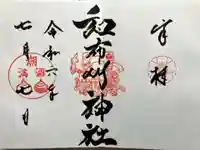 奉拝
和布刈神社
令和六年
七月七日